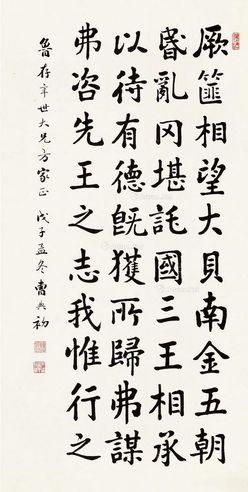 厥篚相望大貝南金五朝
昬亂罔堪託國三王相承
以待有德既獲所歸弗謀
弗咨先王之志我惟行之
魯存年世大兄方家正 戊子孟冬 曹典初